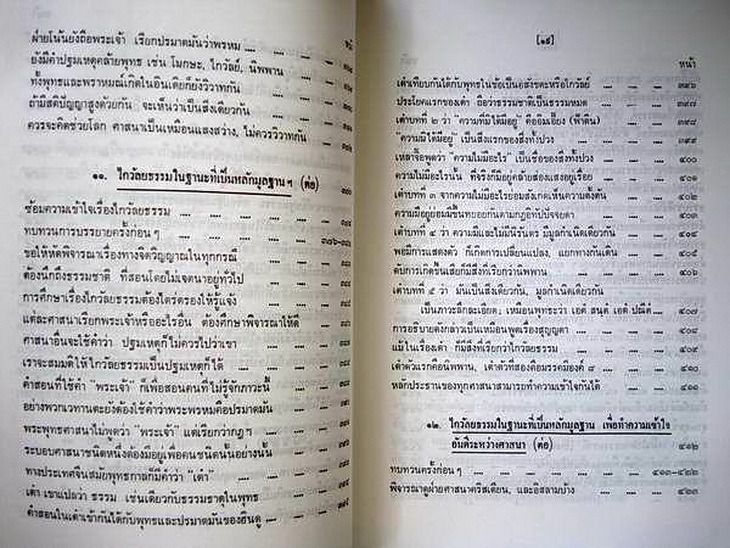 ฝ่ายโน้นยังถือพระเจ้า เรียกปรมาตมันว่าพรหม .... ....
ยังมีคำปฐมเหตุคล้ายพุทธ เช่น โมกษะ, ไกวัลย์, นิพพาน ....
ทั้งพุทธและพราหมณ์เกิดในอินเดียก็ยังวิวาทกัน .... ....
ถ้ามีสติปัญญาสูงด้วยกัน จะเห็นว่าเป็นสิ่งเดียวกัน .... ....
ควรจะคิดช่วยโลก ศาสนาเป็นเหมือนแสงสว่าง, ไม่ควรวิวาทกัน ....
๑๑. ไกวัลยธรรมในฐานะที่เป็นหลักมูลฐาน ฯ (ต่อ)
ซ้อมความเข้าใจเรื่องไกวัลยธรรม .... .... .... ....
ทบทวนการบรรยายครั้งก่อน ๆ .... .... ....
ขอให้หัดพิจารณาเรื่องทางจิตวิญญาณในทุกกรณี ....
ต้องนึกถึงธรรมชาติ ที่สอนโดยไม่เจตนาอยู่ทั่วไป ....
การศึกษาเรื่องไกวัลยธรรมต้องใคร่ตรองให้รู้แจ้ง ....
แต่ละศาสนาเรียกพระเจ้าหรืออะไรอื่น ต้องศึกษาพิจารณาให้ดี
ศาสนาอื่นจะใช้คำว่า ปฐมเหตุก็ไม่ควรไปว่าเขา ....
เราจะสมมติให้ไกวัลยธรรมเป็นปฐมเหตุก็ได้ .... ....
คำสอนที่ใช้คำ "พระเจ้า" ก็เพื่อสอนคนที่ไม่รู้จักภาวะนี้ ....
อย่างพวกเวทานตะยังต้องใช้คำว่าพระพรหมคือปรมาตมัน ....
พระพุทธศาสนาไม่พูดว่า "พระเจ้า" แต่เรียกว่ากฎฯ ....
ระบอบศาสนาชนิดหนึ่งต้องมีอยู่เพื่อคนชนิดนั้นอย่างนั้น ....
ทางประเทศจีนสมัยพุทธกาลก็มีคำว่า "เต๋า" .... ....
เต๋า เขาแปลว่า ธรรม เช่นเดียวกับธรรมธาตุในพุทธ ....
คำสอนในเต๋าเข้ากันได้กับพุทธและปรมาตมันของฮินดู ....
[๑๙]
หน้า
เต๋าเทียบกันได้กับพุทธในข้อเป็นอสังขตะหรือไกวัลย์ .... .... ๓๙๖
ประโยคแรกของเต๋า ถือว่าธรรมชาติเป็นธรรมหมด .... .... ๓๙๗
เต๋าบทที่ ๒ ว่า "ความที่มิได้มีอยู่" คืออิมเอี๊ยง (ฟ้าดิน) .... ๓๙๘
"ความมิได้มีอยู่" เป็นสิ่งแรกของสิ่งทั้งปวง .... .... ๓๙๙
เหลาจื๊อพูดว่า "ความไม่มีอะไร" เป็นชื่อของสิ่งทั้งปวง .... ๔๐๐
ความไม่มีอะไรนั้น ที่จริงก็มีอยู่คล้ายสองแสงอยู่เรื่อย .... ๔๐๑
เต๋าบทที่ ๓ จากความไม่มีอะไรย่อมสังเกตเห็นความตั้งต้น .... ๔๐๒
ความมีอยู่ย่อมมีขึ้นทยอยกันตามกฎอิทัปปัจจยตา .... .... ๔๐๓
เต๋าบทที่ ๔ ว่า ความมีและไม่มีนิรันดร มีมูลกำเนิดเดียวกัน .... ๔๐๔
พอมีการแสดงตัว ก็เกิดการเปลี่ยนแปลง, แยกทางกันเดิน .... ๔๐๕
ดับการเกิดขึ้นเสียก็มีสิ่งที่เรียกว่านิพพาน .... .... ๔๐๖
เต๋าบทที่ ๕ ว่า มันเป็นสิ่งเดียวกัน, มูลกำเนิดเดียวกัน
เป็นภาวะลึกละเอียด; เหมือนพุทธะว่า เอตํ สนฺตํ เอตํ ปณีตํ ๔๐๗
การอธิบายดังกล่าวเป็นเหมือนพูดเรื่องสุญญตา .... .... ๔๐๘
แม้ในเรื่องเต๋า ก็มีสิ่งที่เรียกว่าไกวัลยธรรม .... .... ๔๐๙
เต๋าตัวแรกคือนิพพาน, เต๋าตัวที่สองคือมรรคมีองค์ ๘ .... .... ๔๑๐
หลักประธานของทุกศาสนาสามารถทำความเข้าใจกันได้ .... ๔๑๑
๑๒. ไกวัลยธรรมในฐานะที่เป็นหลักมูลฐาน เพื่อทำความเข้าใจ
อันดีระหว่างศาสนา (ต่อ) ๔๑๒
ทบทวนครั้งก่อน ๆ .... .... .... .... ๔๑๓-๔๒๒
พิจารณาดูฝ่ายศาสนาคริสเตียน, และอิสลามบ้าง .... .... ๔๒๓